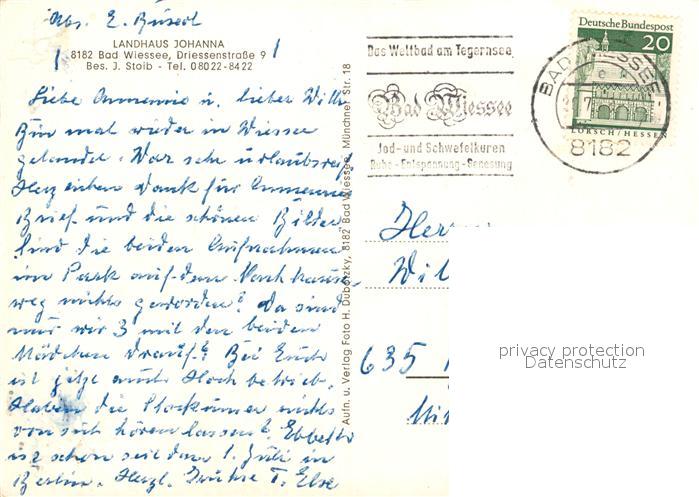 Abs. E.
LANDHAUS JOHANNA
8182 Bad Wiessee, Driessenstraße 9
Bes. J. Stoib - Tel. 08022-8422
Liebe Annemie u. lieber Willi
Bin mal wieder in Wiessee
gelandet. War sehr urlaubsreif.
Herzlichen Dank für Annemies
Brief und die schönen Bilder.
Sind die beiden Aufnahmen
im Park auf dem Nachhause-
weg nichts geworden? Da sind
nur wir 3 mit den beiden
Mädchen drauf? Bei Euch
ist jetzt auch Hochbetrieb.
Haben die nichts
von sich hören lassen?
ist schon seit dem 1. Juli in
Berlin. Herzl. Grüße T. Else
Aufn. u. Verlag Foto H. Dubotzky, 8182 Bad Wiessee, Münchner Str. 18
Das Weltbad am Tegernsee
Bad Wiessee
Jod- und Schwefelkuren
Ruhe - Entspannung - Genesung
Deutsche Bundespost
20
LORSCH/HESSEN
BAD WIESSEE
8182
Her
Wil
635
privacy protection
Datenschutz